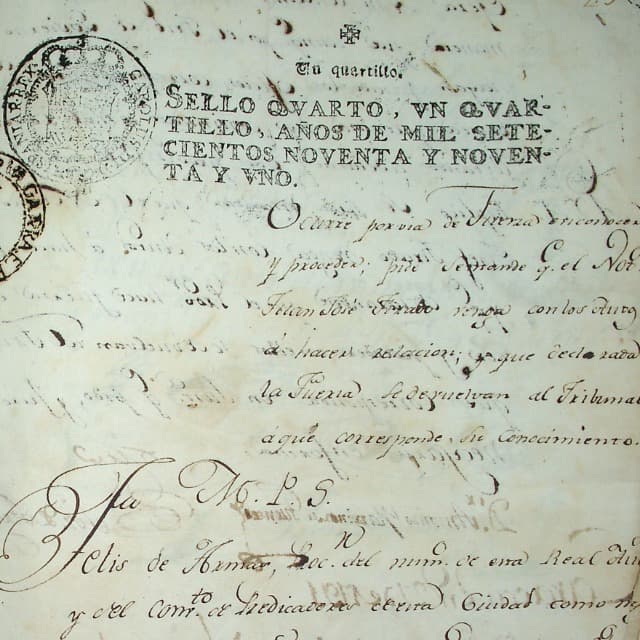 Un quartillo.
SELLO QVARTO, VN QVAR-
TILLO, AÑOS DE MIL SETE-
CIENTOS NOVENTA Y NOVEN-
TA Y VNO.
Ocurre por via de Fuerza en conocer
y proceder; pide se mande q.e el Not.
Juan José Tirado venga con los Autos
á hacer relacion; y que declarada
la Fuerza se devuelvan al Tribunal
á que corresponde su conocimiento.
M. P. S.
Felis de Armas, Proc.r del num.o de esta Real Au
y del Com.to de Predicadores de esta Ciudad como